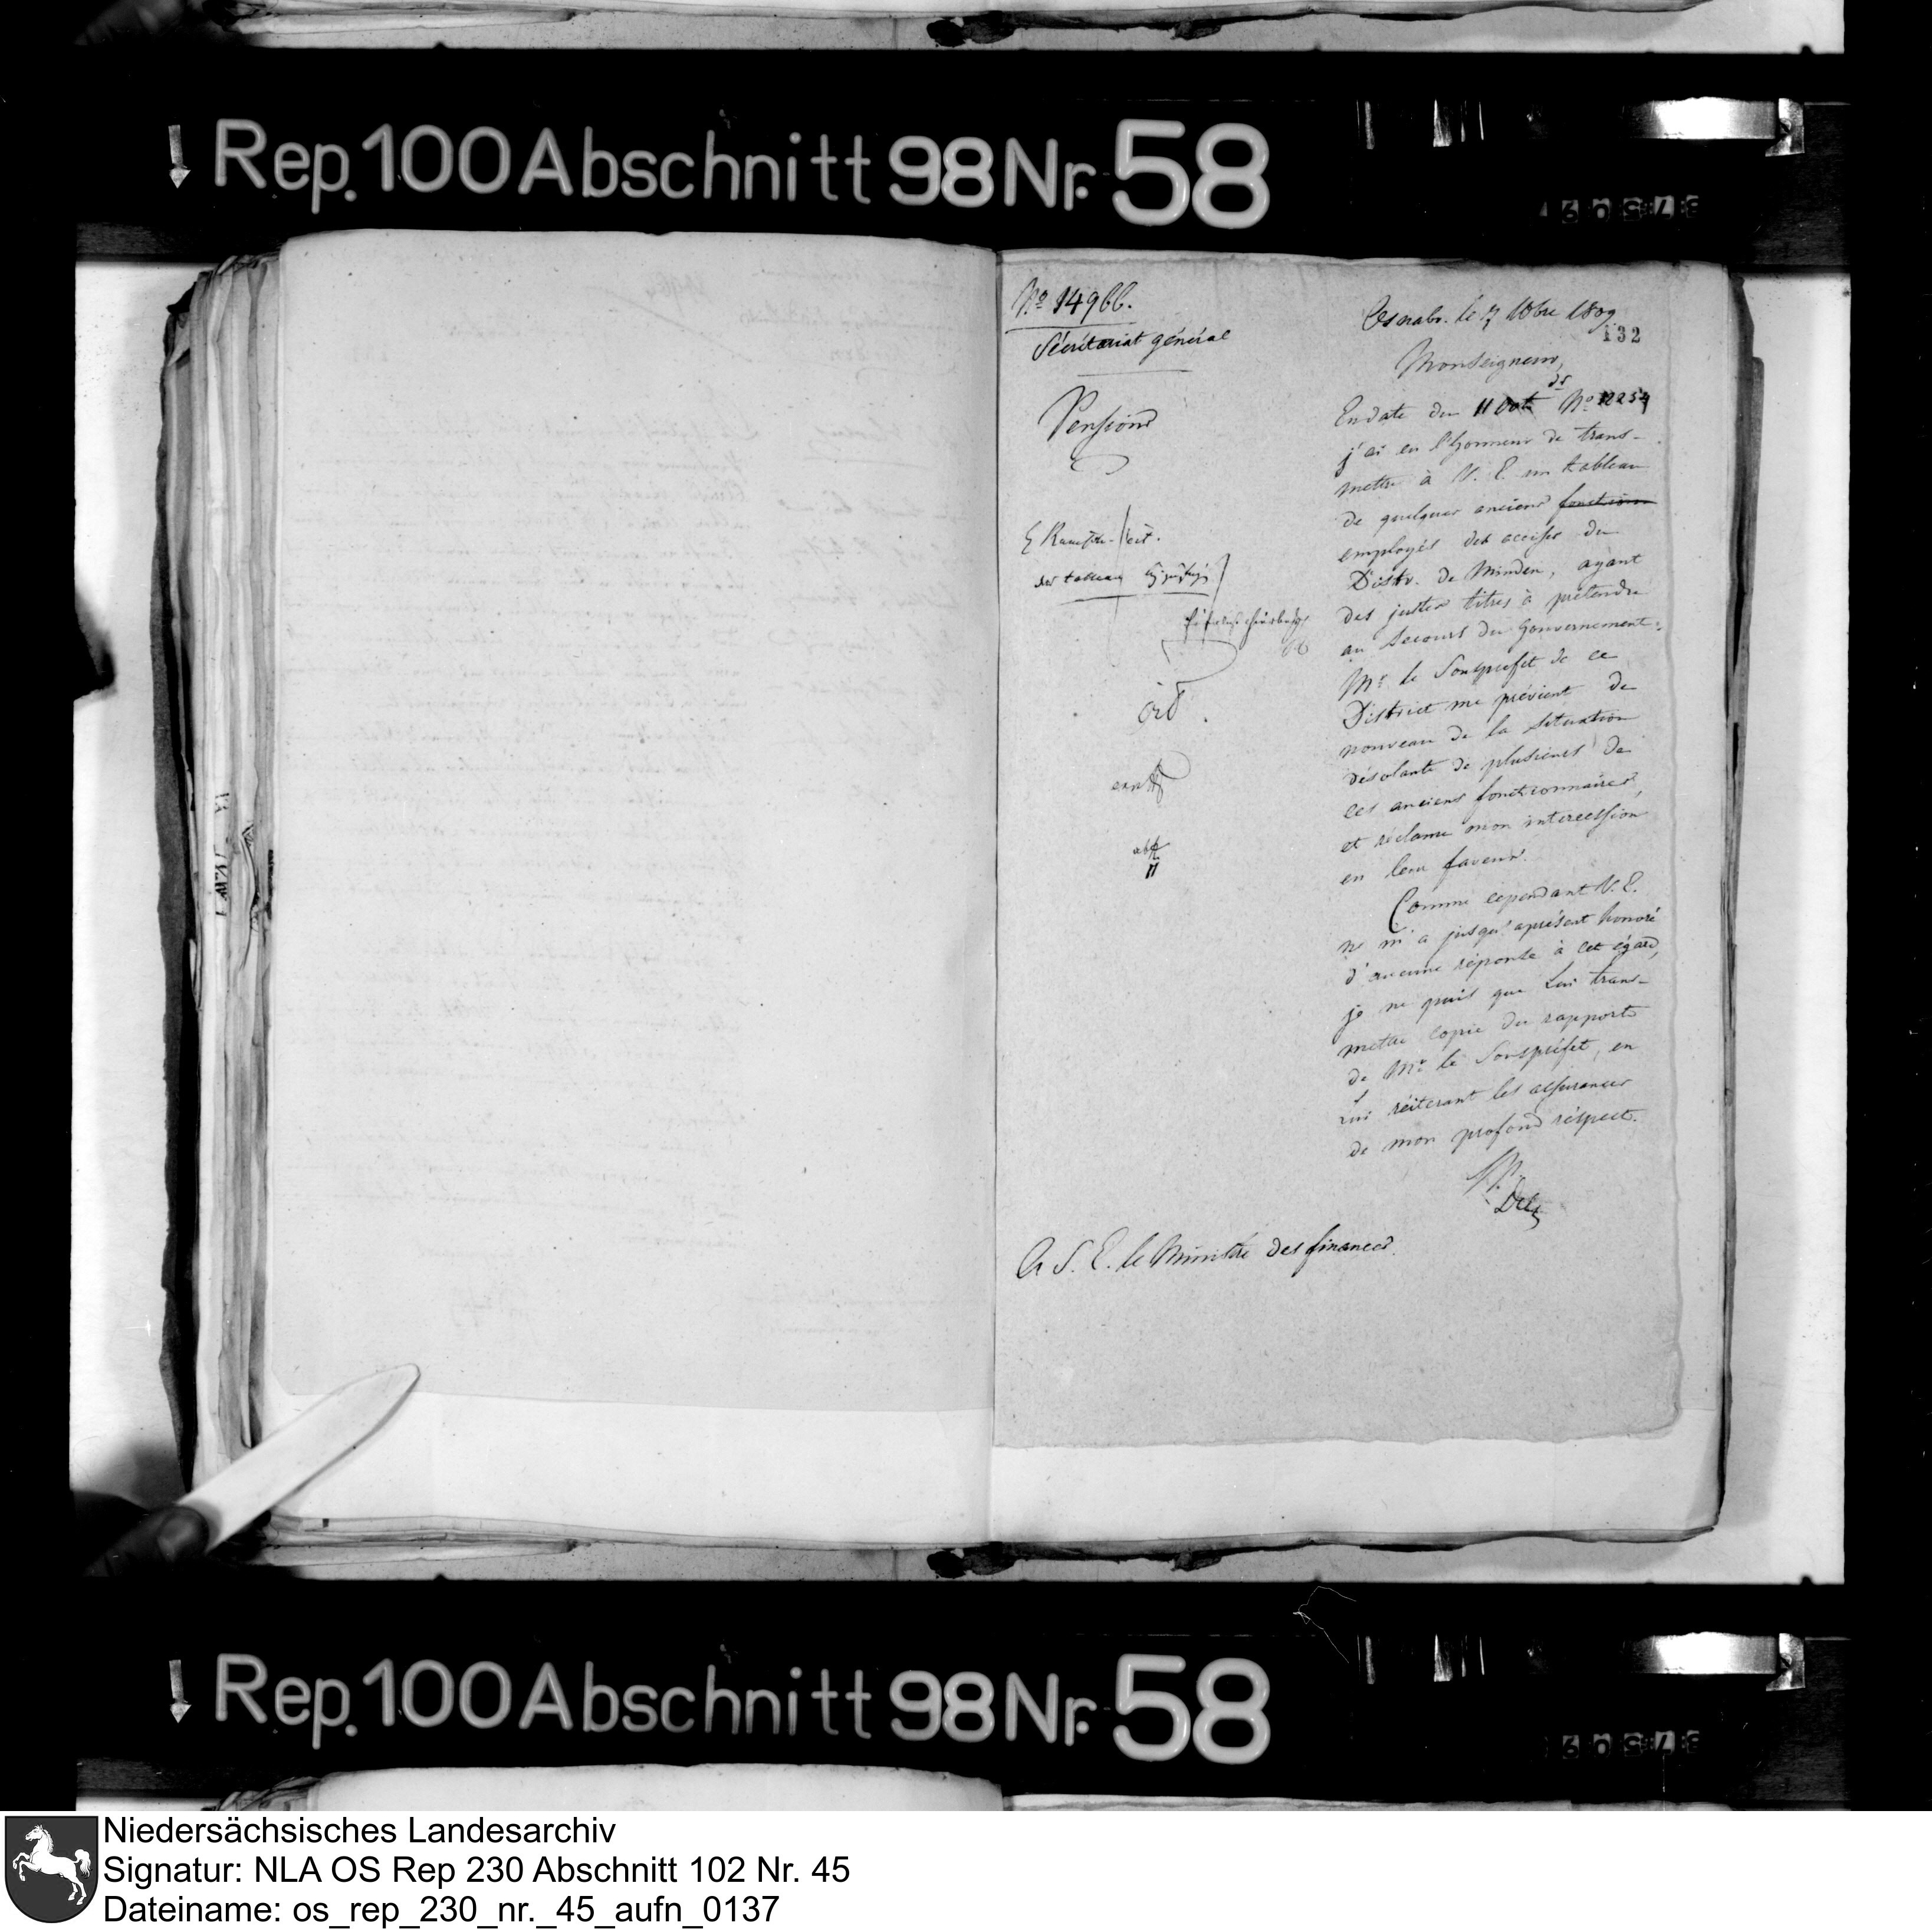 Rep. 100 Abschnitt 98 Nr. 58
Nº 14966.
Sécrétariat général
Pensions
Osnabr. le 17 10bre 1809
132
Monseigneur,
En date du 11 Nº 12254
j'ai eu l'honneur de trans-
mettre à V. E. un tableau
de quelques anciens fonction
employés des accises du
Distr. de Minden, ayant
des justes titres à prétendre
au secours du Gouvernement.
Mr. le Sousprefet de ce
District me prévient de
nouveau de la situation
désolante de plusieurs de
ces anciens fonctionnaires,
et réclame mon intercession
en leur faveur.
Comme cependant V. E.
ne m'a jusqu'aprésent honoré
d'aucune réponse à cet égard,
je ne puis que Lui trans-
mettre copie du rapport
de Mr. le Sousprefet, en
Lui réiterant les assurances
de mon profond réspect.
A S. E. le Ministre des finances.
Rep. 100 Abschnitt 98 Nr. 58
Niedersächsisches Landesarchiv
Signatur: NLA OS Rep 230 Abschnitt 102 Nr. 45
Dateiname: os_rep_230_nr._45_aufn_0137